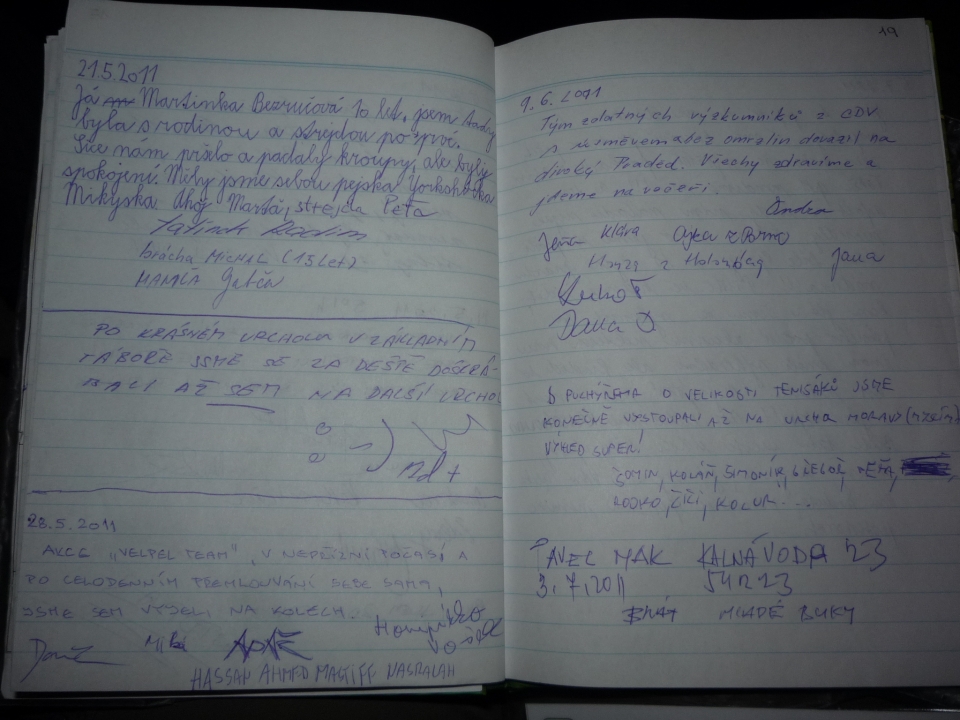 21.5.2011
Já Martinka Bezručová 10 let, jsem tady
byla s rodinou a strejdou po prvé.
Sice nám pršelo a padaly kroupy, ale byli
spokojení. Měly jsme sebou pejska Yorkshirka
Mikyska Ahoj Marťa, strejda Peťa
Tatínek Radim
brácha MICHAL (13 let)
MAMKA Gábča
PO KRÁSNÉM VRCHOLU V ZÁKLADNÍM
TÁBOŘE JSME SE ZA DEŠTĚ DOŠKRÁ-
BALI AŽ SEM NA DALŠÍ VRCHOL
28.5.2011
AKCE "VELPEL TEAM", V NEPŘÍZNI POČASÍ A
PO CELODENNÍM PŘEMLOUVÁNÍ SEBE SAMA,
JSME SEM VYJELI NA KOLECH.
HASSAN AHMED MASTIFF NASRALAH
19
9.6.2011
Tým zdatných výzkumníků z CDV
s úsměvem a bez omrzlin dorazil na
divoký Praděd. Všechny zdravíme a
jdeme na večeři.
Ondra
Klára z Brna
z Jana
Luboš
Dana
S PUCHÝŘEMA O VELIKOSTI TENISÁKŮ JSME
KONEČNĚ VYSTOUPALI AŽ NA VRCHOL MORAVY
VÝHLED SUPER!
PAVEL MAK KALNÁ VODA 23
3.7.2011 54223
MLADÉ BUKY